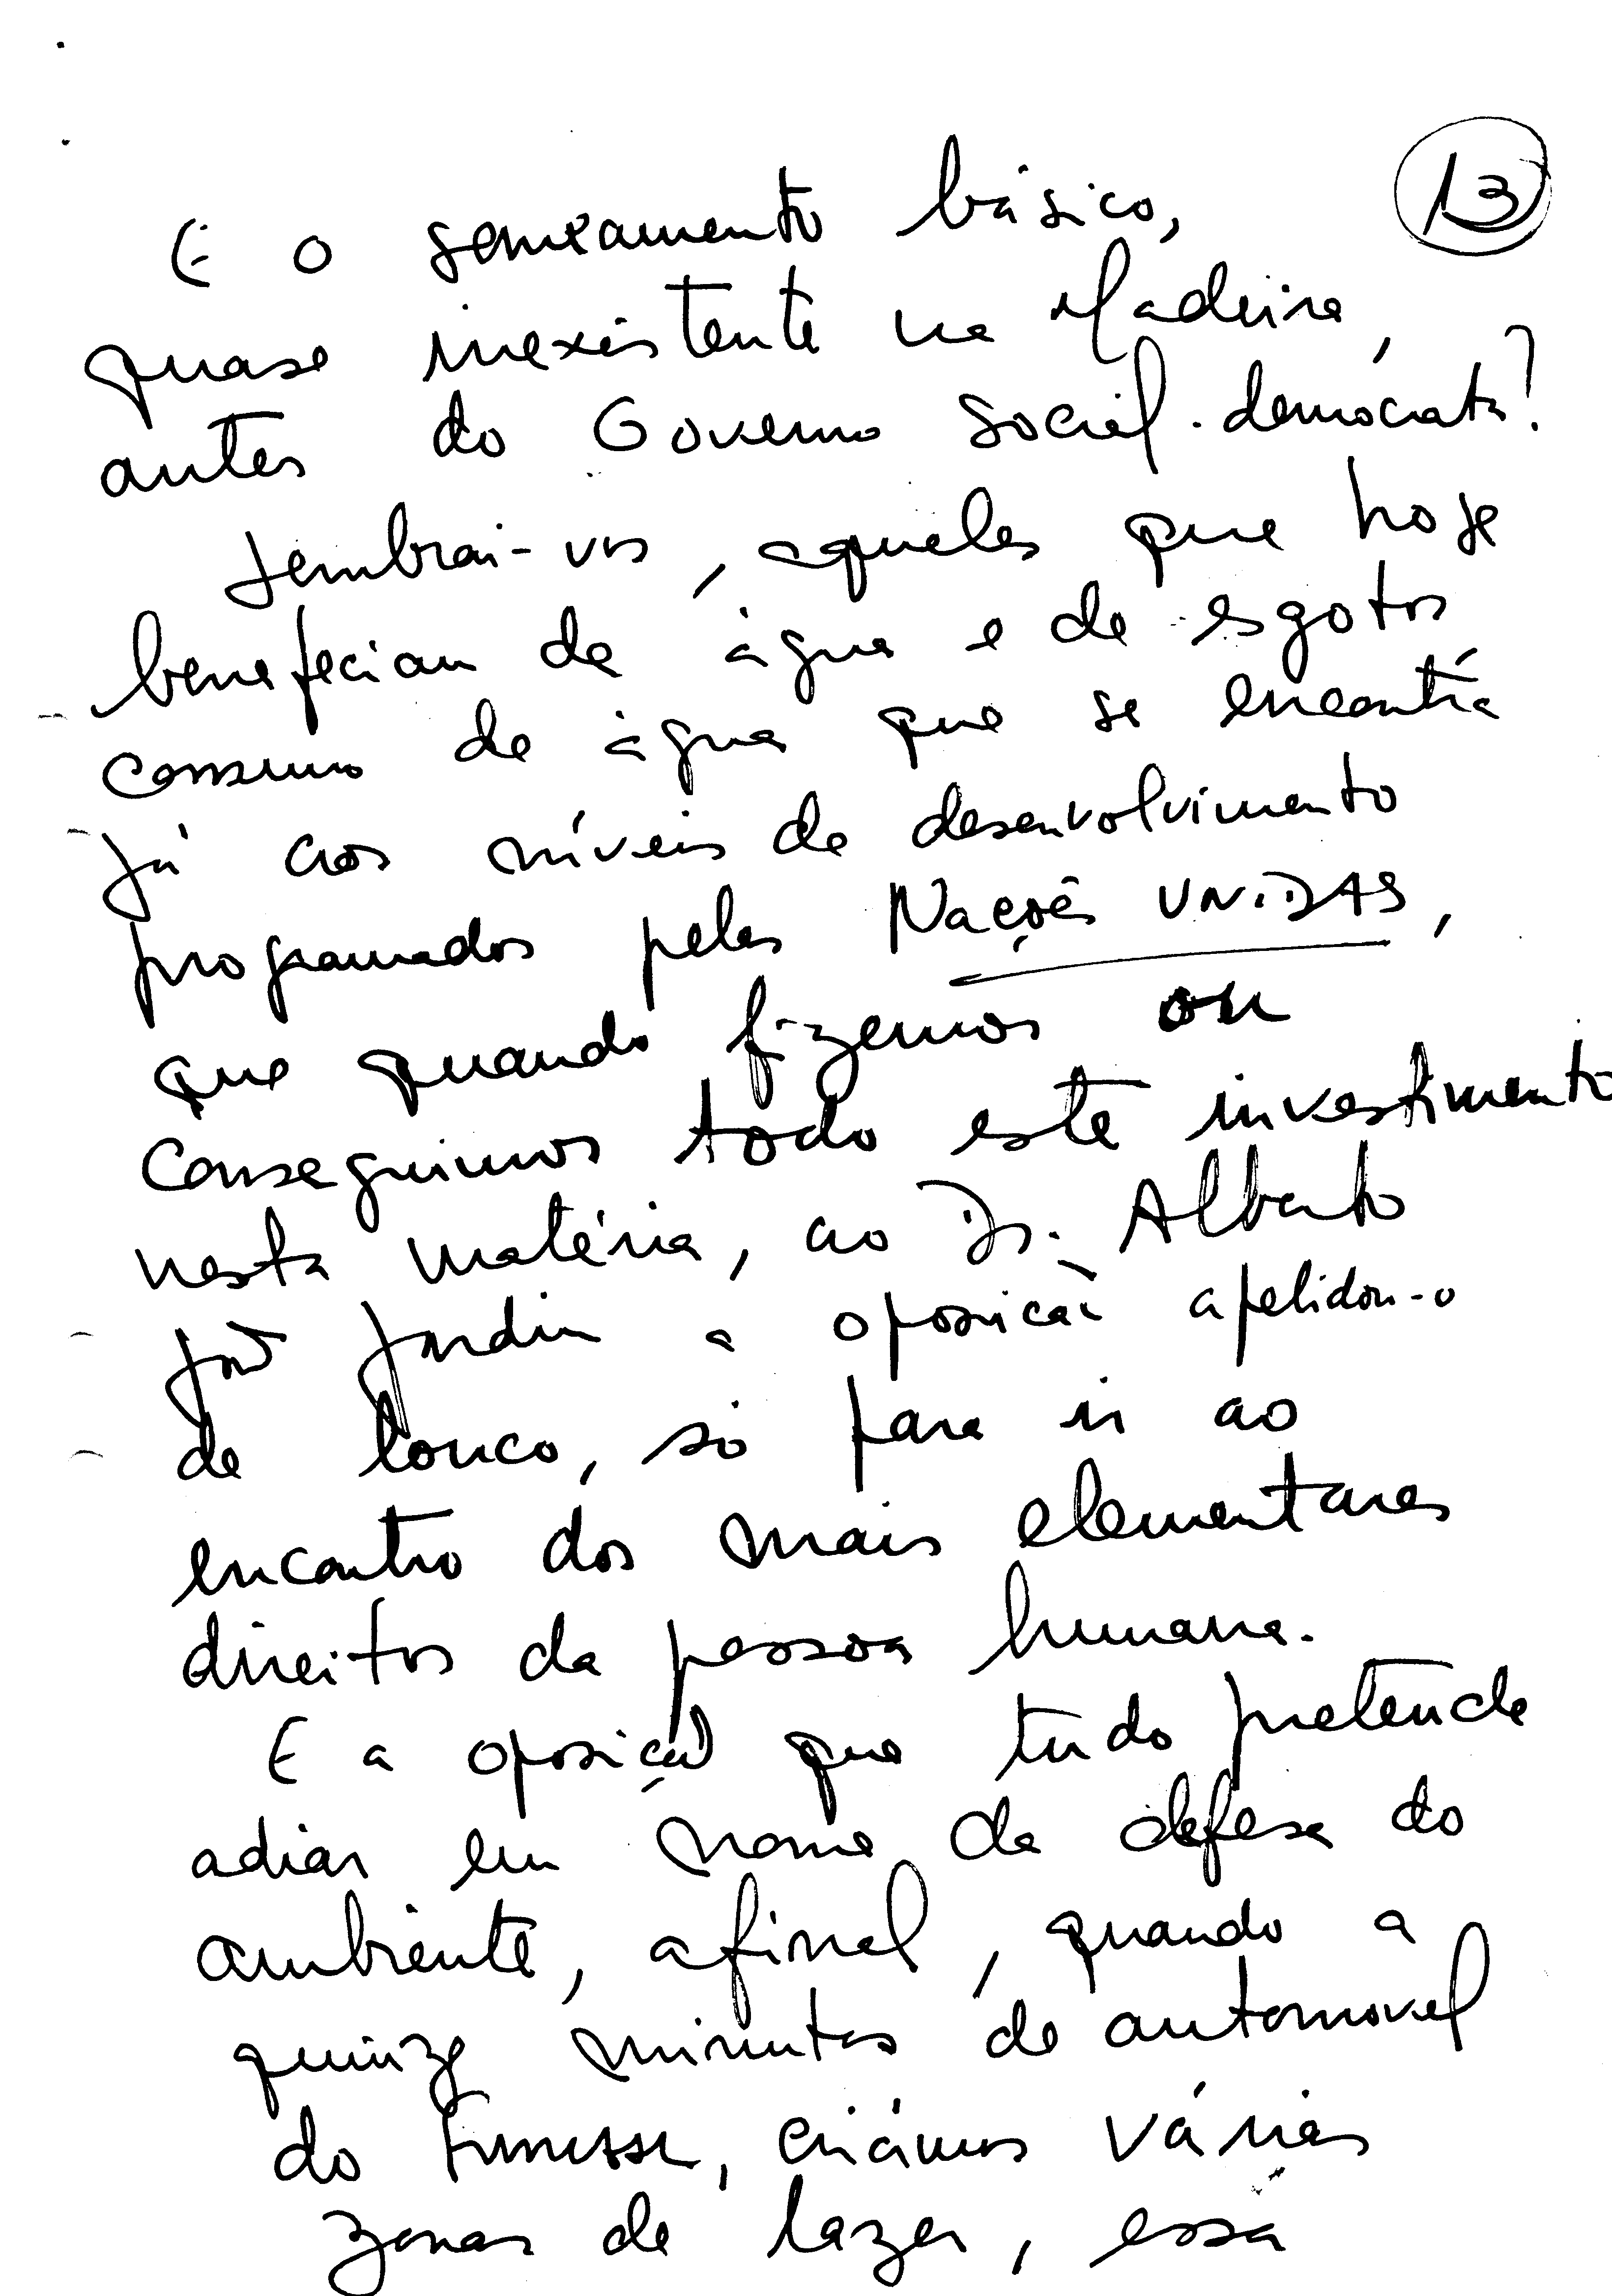 13
E o saneamento básico,
quase inexistente na Madeira,
antes do Governo social-democrata?
Lembrai-vos, aqueles que hoje
beneficiam de água e de esgotos
consumo de água que se encontra
já aos níveis de desenvolvimento
programados pelas Nações UNIDAS,
que quando fizemos ou
conseguimos todo este investimento
nesta matéria, ao Dr. Alberto
João Jardim a oposição apelidou-o
de louco, só para ir ao
encontro dos mais elementares
direitos da pessoa humana.
E a oposição que tudo pretende
adiar em nome da defesa do
ambiente, afinal, quando a
quinze minutos de automovel
do Funchal, criámos várias
zonas de lazer, essa